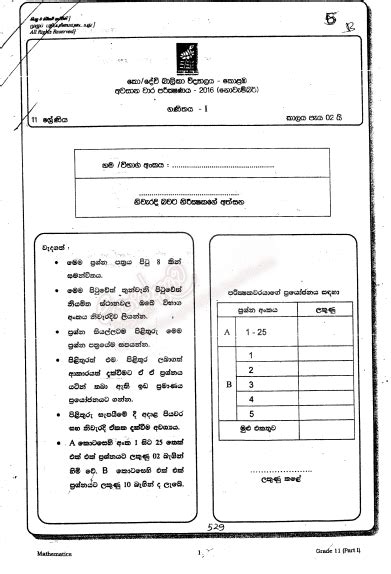 සියලු හිමිකම් ඇවිරිණි]
All Rights Reserved]
කො/දේවි බාලිකා විද්‍යාලය - කොළඹ
අවසාන වාර පරීක්ෂණය - 2016 (නොවැම්බර්)
ගණිතය - I
11 ශ්‍රේණිය
කාලය පැය 02 යි
නම /විභාග අංකය : ................................................
................................................
නිවැරදි බවට නිරීක්ෂකගේ අත්සන
වැදගත් :
• මෙම ප්‍රශ්න පත්‍රය පිටු 8 කින්
සමන්විතය.
• මෙම පිටුවේත් තුන්වැනි පිටුවේත්
නියමිත ස්ථානවල ඔබේ විභාග
අංකය නිවැරදිව ලියන්න.
• ප්‍රශ්න සියල්ලටම පිළිතුරු මෙම
ප්‍රශ්න පත්‍රයේම සපයන්න.
• පිළිතුරත් එම පිළිතුර ලබාගත්
ආකාරයත් දැක්වීමට ඒ ඒ ප්‍රශ්නය
යටින් තබා ඇති ඉඩ ප්‍රමාණය
ප්‍රයෝජනයට ගන්න.
• පිළිතුරු සැපයීමේ දී අදාළ පියවර
සහ නිවැරදි ඒකක දැක්වීම අවශ්‍යය.
• A කොටසෙහි අංක 1 සිට 25 තෙක්
එක් එක් ප්‍රශ්නයට ලකුණු 02 බැගින්
හිමි වේ. B කොටසෙහි එක් එක්
ප්‍රශ්නයට ලකුණු 10 බැගින් ද ලැබේ.
පරීක්ෂකවරයාගේ ප්‍රයෝජනය සඳහා
ප්‍රශ්න අංකය ලකුණු
A 1 - 25
1
2
B 3
4
5
මුළු එකතුව
........................
ලකුණු කළේ
529
Mathematics 1 Grade 11 (Part I)